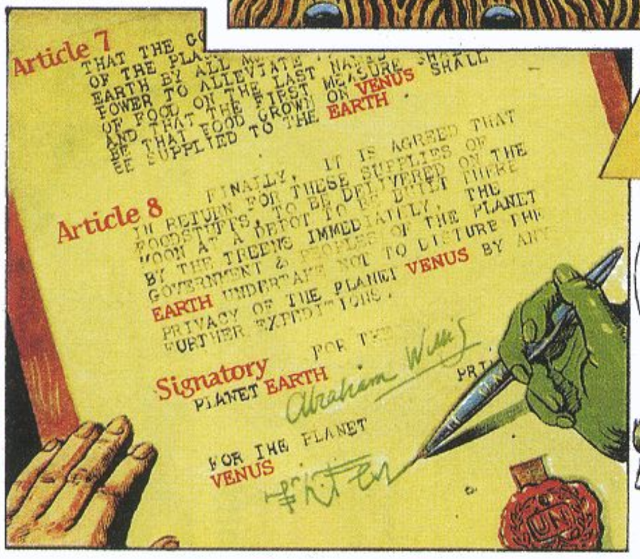 Article 7
THAT THE GO
OF THE PLA
EARTH BY ALL
POWER TO ALLEVIATE
OF FOOD ON THE LAST
AND THAT THE FIRST MEASURE SHALL
BE THAT FOOD GROWN ON VENUS SHALL
BE SUPPLIED TO THE EARTH
Article 8
FINALLY, IT IS AGREED THAT
IN RETURN FOR THESE SUPPLIES OF
FOODSTUFFS, TO BE DELIVERED ON THE
MOON AT A DEPOT TO BE BUILT THERE
BY THE TREENS IMMEDIATELY, THE
GOVERNMENT & PEOPLES OF THE PLANET
EARTH UNDERTAKE NOT TO DISTURB THE
PRIVACY OF THE PLANET VENUS BY ANY
FURTHER EXPEDITIONS.
Signatory FOR THE
PLANET EARTH
Abraham Willis
PRI
FOR THE PLANET
VENUS
UN